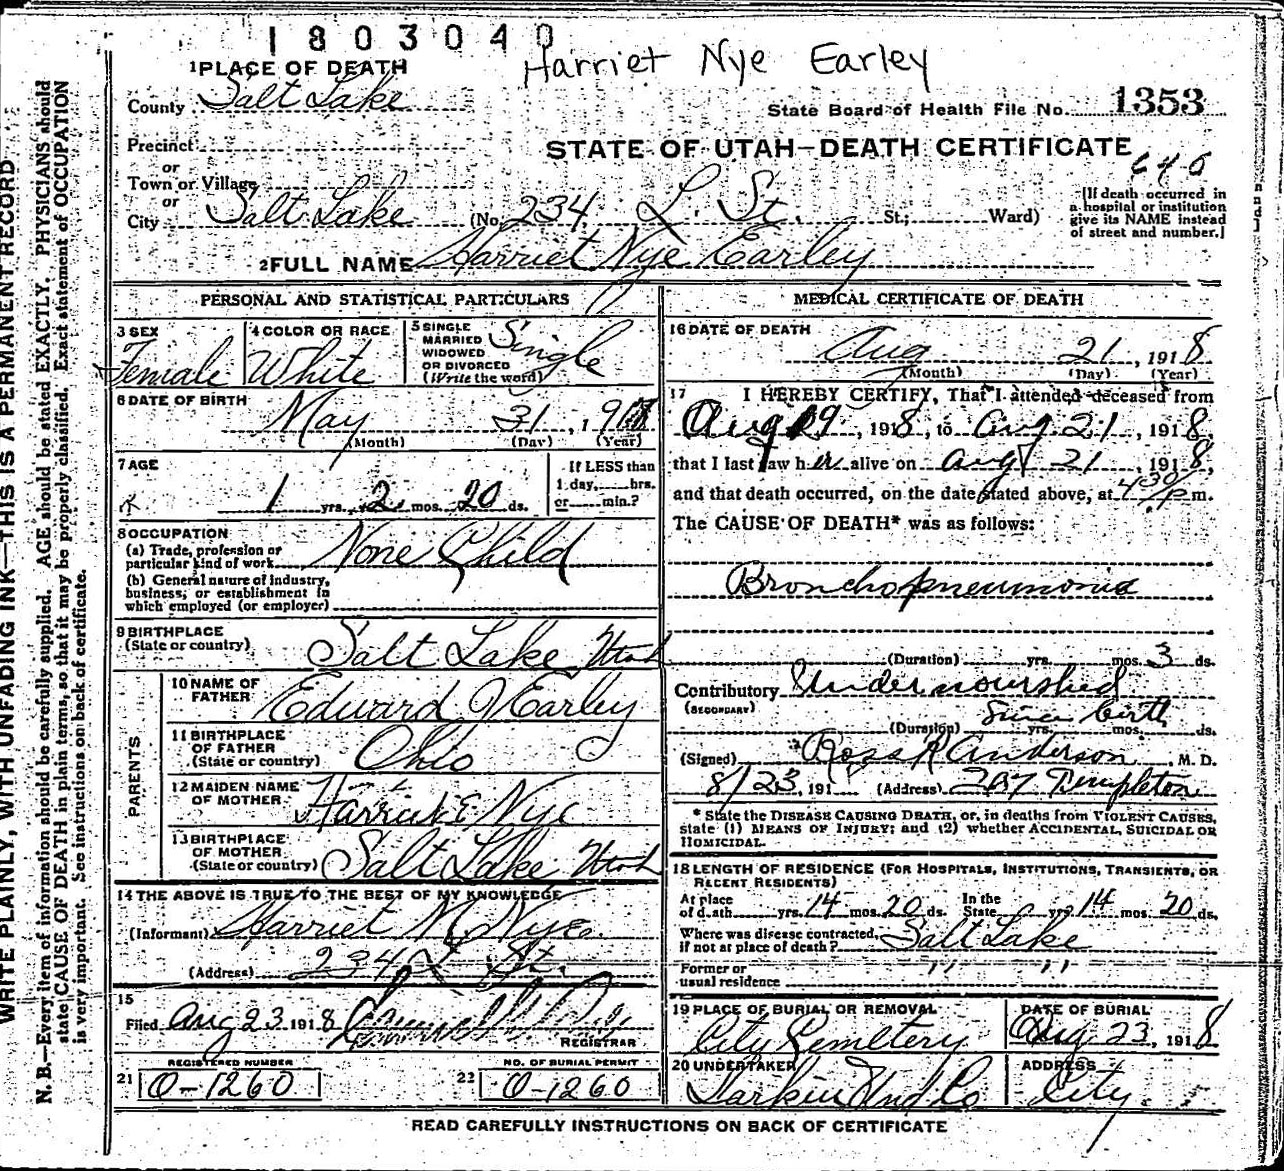 1803040
Harriet Nye Earley
1 PLACE OF DEATH
County Salt Lake
State Board of Health File No. 1353
Precinct
STATE OF UTAH—DEATH CERTIFICATE
or
Town or Village
or
City Salt Lake (No. 234 L. St. St.; Ward)
[If death occurred in
a hospital or institution
give its NAME instead
of street and number.]
2 FULL NAME Harriet Nye Earley
PERSONAL AND STATISTICAL PARTICULARS
3 SEX Female
4 COLOR OR RACE White
5 SINGLE
MARRIED
WIDOWED
OR DIVORCED
(Write the word) Single
6 DATE OF BIRTH
May 31, 191
(Month) (Day) (Year)
7 AGE
1 yrs. 2 mos. 20 ds.
If LESS than
1 day, hrs.
or min.?
8 OCCUPATION
(a) Trade, profession or
particular kind of work None Child
(b) General nature of industry,
business, or establishment in
which employed (or employer)
9 BIRTHPLACE
(State or country) Salt Lake Utah
PARENTS
10 NAME OF
FATHER Edward J Earley
11 BIRTHPLACE
OF FATHER
(State or country) Ohio
12 MAIDEN NAME
OF MOTHER Harriet E Nye
13 BIRTHPLACE
OF MOTHER
(State or country) Salt Lake Utah
14 THE ABOVE IS TRUE TO THE BEST OF MY KNOWLEDGE
(Informant) Harriet M. Nye
(Address) 234 L St.
15
Filed Aug 23 1918
REGISTRAR
REGISTERED NUMBER
21 O-1260
NO. OF BURIAL PERMIT
22 O-1260
MEDICAL CERTIFICATE OF DEATH
16 DATE OF DEATH
Aug 21, 1918
(Month) (Day) (Year)
17 I HEREBY CERTIFY, That I attended deceased from
Aug 19, 1918, to Aug 21, 1918,
that I last saw her alive on Aug 21, 1918,
and that death occurred, on the date stated above, at 4 30/p m.
The CAUSE OF DEATH* was as follows:
Bronchopneumonia
(Duration) yrs. mos. 3 ds.
Contributory Undernourished
(SECONDARY)
Since birth
(Duration) yrs. mos. ds.
(Signed) Ross R Anderson, M. D.
8/23, 191 (Address) Templeton
* State the DISEASE CAUSING DEATH, or, in deaths from VIOLENT CAUSES,
state (1) MEANS OF INJURY; and (2) whether ACCIDENTAL, SUICIDAL OR
HOMICIDAL.
18 LENGTH OF RESIDENCE (FOR HOSPITALS, INSTITUTIONS, TRANSIENTS, OR
RECENT RESIDENTS)
At place
of death yrs. 14 mos. 20 ds.
In the
State yrs. 14 mos. 20 ds.
Where was disease contracted,
if not at place of death? Salt Lake
Former or
usual residence " "
19 PLACE OF BURIAL OR REMOVAL
City Cemetery
DATE OF BURIAL
Aug 23, 1918
20 UNDERTAKER
Larkin Und Co
ADDRESS
City.
READ CAREFULLY INSTRUCTIONS ON BACK OF CERTIFICATE
WRITE PLAINLY, WITH UNFADING INK—THIS IS A PERMANENT RECORD
N. B.—Every item of information should be carefully supplied. AGE should be stated EXACTLY. PHYSICIANS should
state CAUSE OF DEATH in plain terms, so that it may be properly classified. Exact statement of OCCUPATION
is very important. See instructions on back of certificate.